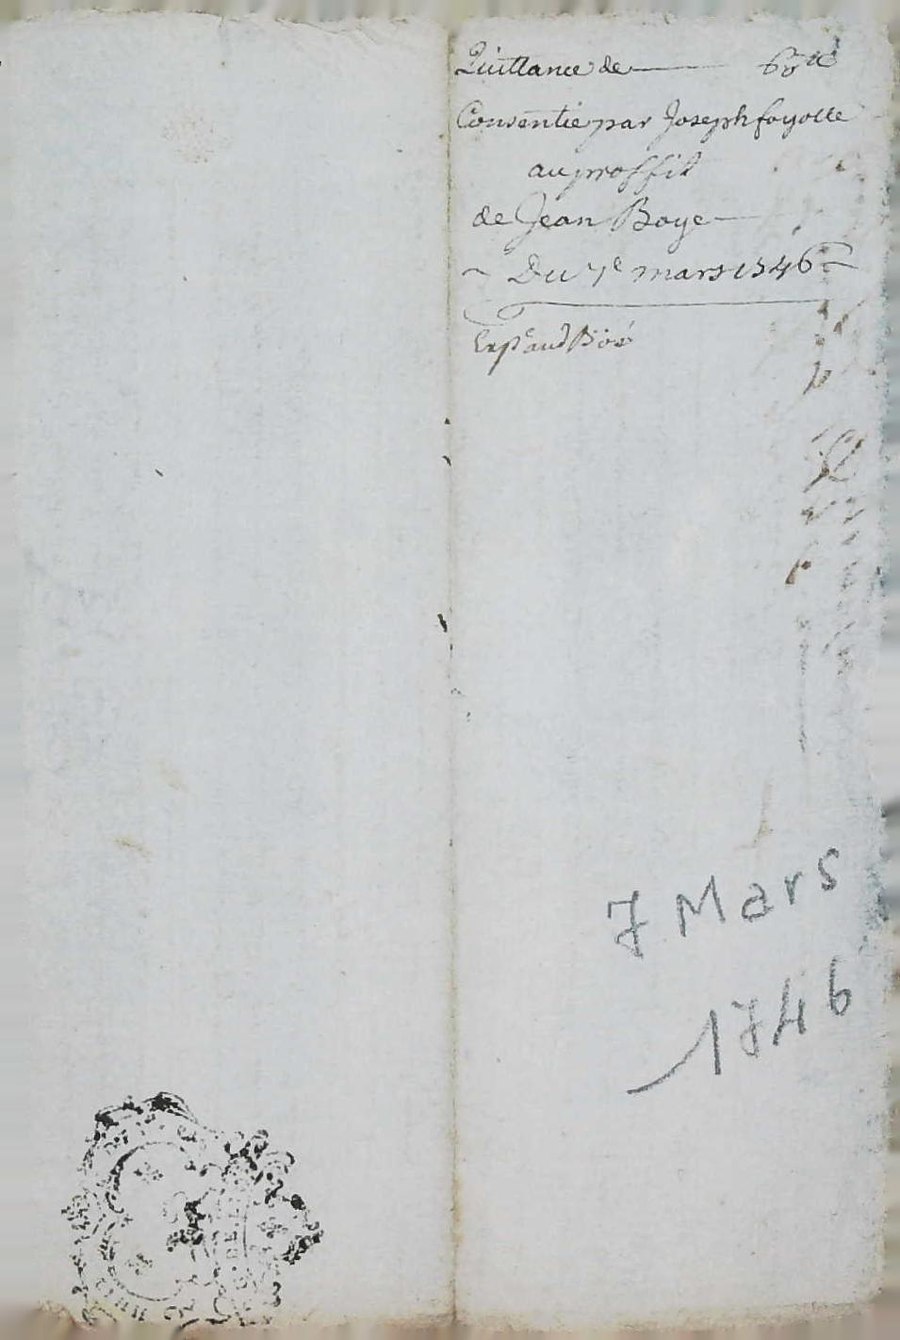 Quittance de 60 tt
Consentie par Joseph fayolle
au proffit
de Jean Boye
Du 7e mars 1746
Exp e aud Boé
7 Mars
1746